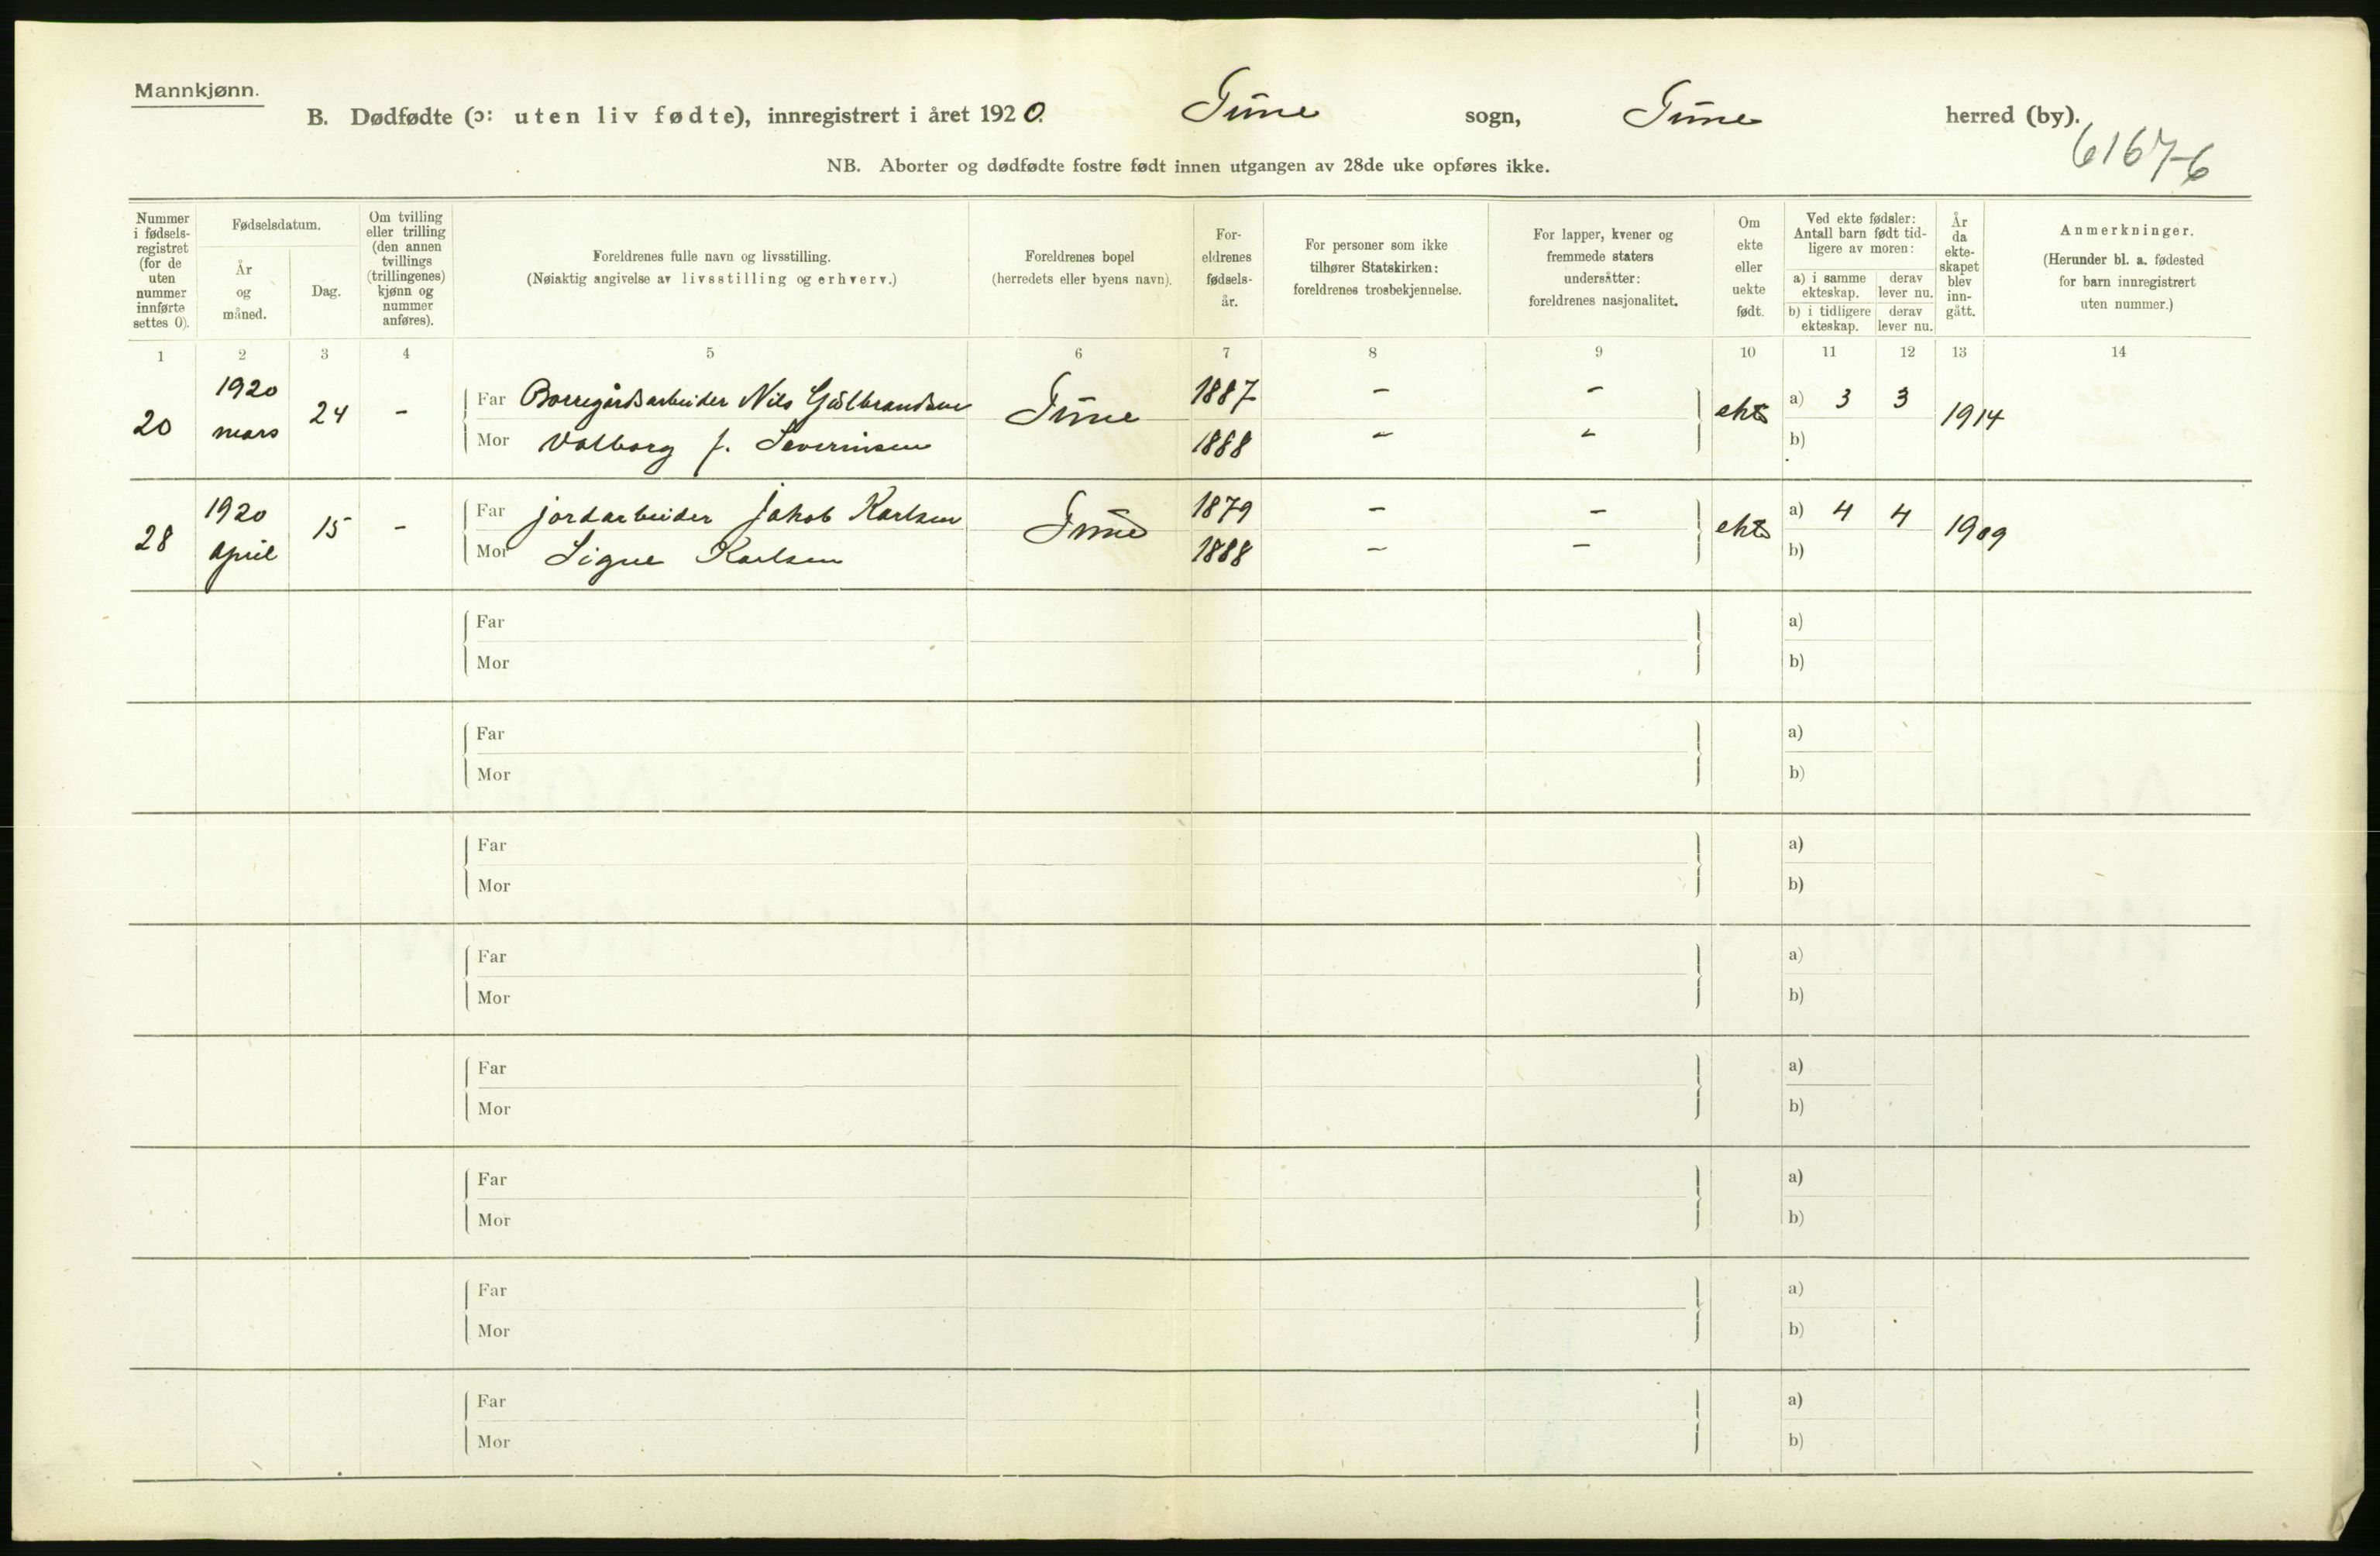 Mannkjønn.
B. Dødfødte (ɔ: uten liv fødte), innregistrert i året 1920. Tune sogn, Tune herred (by).
6167-6
NB. Aborter og dødfødte fostre født innen utgangen av 28de uke opføres ikke.
Nummer i fødsels- registret (for de uten nummer innførte settes 0).
Fødselsdatum.
År og måned.
Dag.
Om tvilling eller trilling (den annen tvillings (trillingenes) kjønn og nummer anføres).
Foreldrenes fulle navn og livsstilling.
(Nøiaktig angivelse av livsstilling og erhverv.)
Foreldrenes bopel
(herredets eller byens navn).
For- eldrenes fødsels- år.
For personer som ikke tilhører Statskirken: foreldrenes trosbekjennelse.
For lapper, kvener og fremmede staters undersåtter: foreldrenes nasjonalitet.
Om ekte eller uekte født.
Ved ekte fødsler: Antall barn født tid- ligere av moren:
a) i samme ekteskap.
derav lever nu.
b) i tidligere ekteskap.
derav lever nu.
År da ekte- skapet blev inn- gått.
Anmerkninger.
(Herunder bl. a. fødested for barn innregistrert uten nummer.)
1 2 3 4 5 6 7 8 9 10 11 12 13 14
20 1920 mars 24 - Far Borregårdsarbeider Nils Gulbrandsen Tune 1887 - - ekte a) 3 3 1914
Mor Valborg f. Severinsen 1888 - - b)
28 1920 april 15 - Far jordarbeider Jakob Karlsen Tune 1879 - - ekte a) 4 4 1909
Mor Signe Karlsen 1888 - - b)
Far a)
Mor b)
Far a)
Mor b)
Far a)
Mor b)
Far a)
Mor b)
Far a)
Mor b)
Far a)
Mor b)
Far a)
Mor b)
Far a)
Mor b)